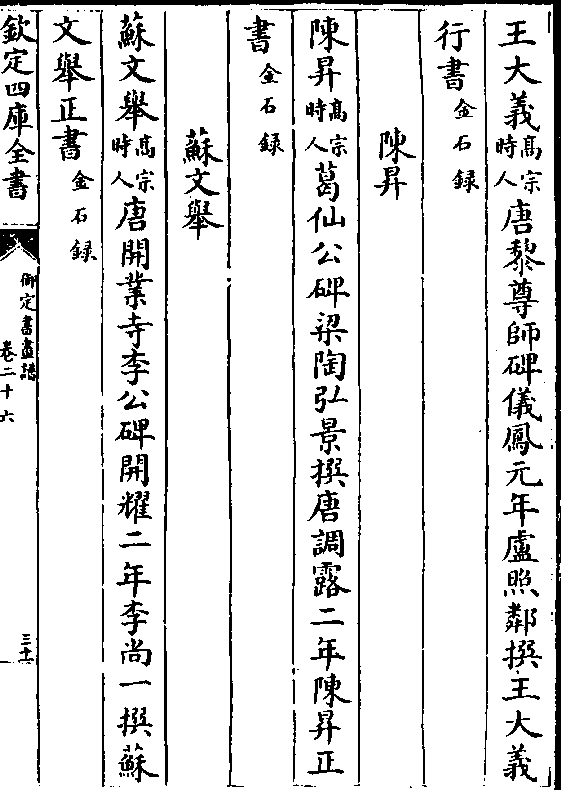 王大義高宗時人唐黎尊師碑儀鳳元年盧照鄰撰王大義
行書金石録
陳昇
陳昇高宗時人葛仙公碑梁陶弘景撰唐調露二年陳昇正
書金石録
蘇文舉
蘇文舉高宗時人唐開業寺李公碑開耀二年李尚一撰蘇
文舉正書金石録
欽定四庫全書
御定書畫譜
卷二十六
三十